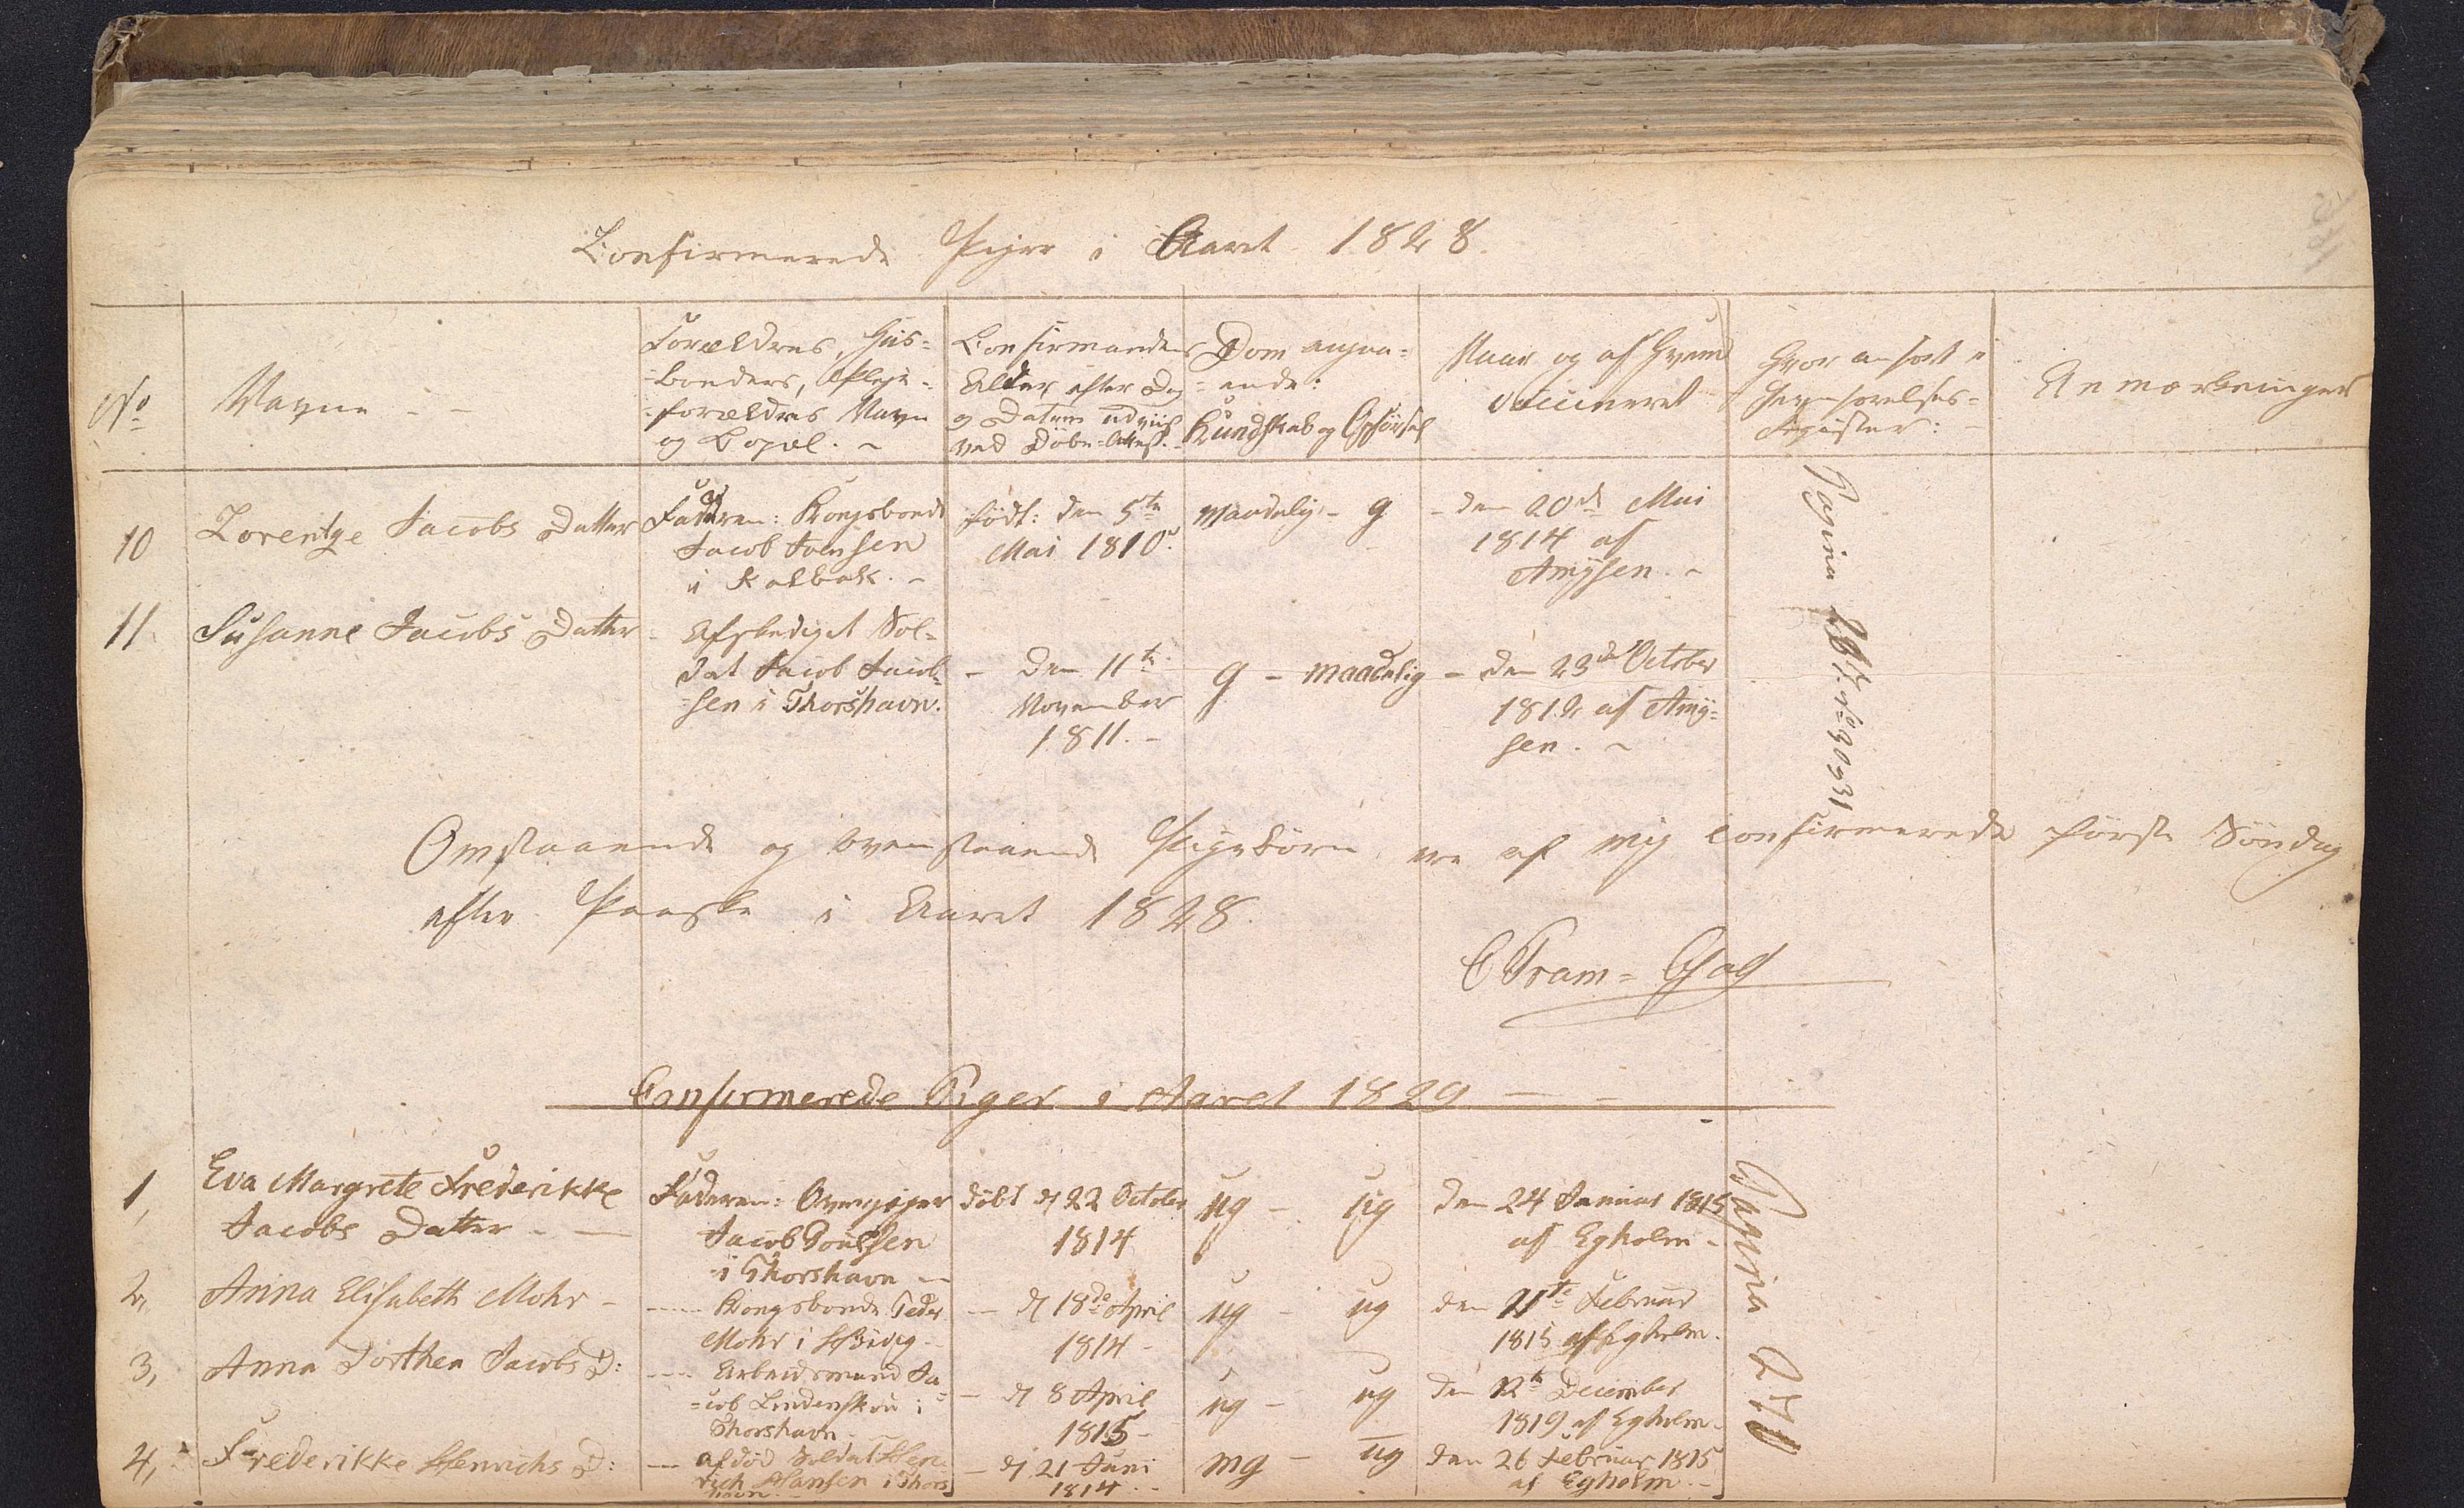 Confirmerede Piger i Aaret 1828.
No
Navne - -
Forældres, Huus=
=bonders, Pleje=
=forældres Navn
og Bopæl. -
Confirmandens
Alder, efter Dag
og Datum udviist
ved Döbe-Attest.
Dom angaa=
=ende:
Kundskab og Opförsel
Naar og af hvem
vaccineret
Hvor anfört i
Jevnförelses=
Register: -
Anmærkninger
10
Lorentze Jacobs Datter
Faderen: Kongsbonde
Jacob Joensen
i Kalbak. -
födt: den 5te
Mai 1810.
maadelig - g
- den 20de Mai
1814 af
Amýsen. -
Pagina No 30 og 31
11.
Susanne Jacobs Datter
- Afskediget Sol=
dat Jacob Jacob=
sen i Thorshavn.
- den 11te
November
1811. -
g - maadelig
- den 23de October
1812 af Amý=
sen. -
Omstaaende og ovenstaaende Pigebörn ere af mig confirmerede förste Söndag
efter Paaske i Aaret 1828.
C Tram=
Confirmerede Piger i Aaret 1829 - -
1,
Eva Margrete Frederikke
Jacobs Datter - -
Faderen:
Jacob Poulsen
i Thorshavn -
döbt d 22 October
1814
ug - ug
den 24 Januar 1815
af Egholm -
Pagina 270
2,
Anna Elisabeth Mohr -
---- Kongsbonde Peder
Mohr i Hoivig -
- d 18de April
1814 -
ug - ug
den 21te Februar
1815 af Egholm.
3,
Anna Dorthea Jacobs D:
---- Arbeidsmand Ja=
=cob Lindenskou i
Thorshavn -
- d 8 April
1815 -
ug - ug
den 12te December
1819 af Egholm.
4,
Frederikke Henrichs D:
--- afdöd Soldat Hen=
rich Hansen i Thors
havn -
- d 21 Juni
1814 - -
mg - ug
den 26 Februar 1815
af Egholm -